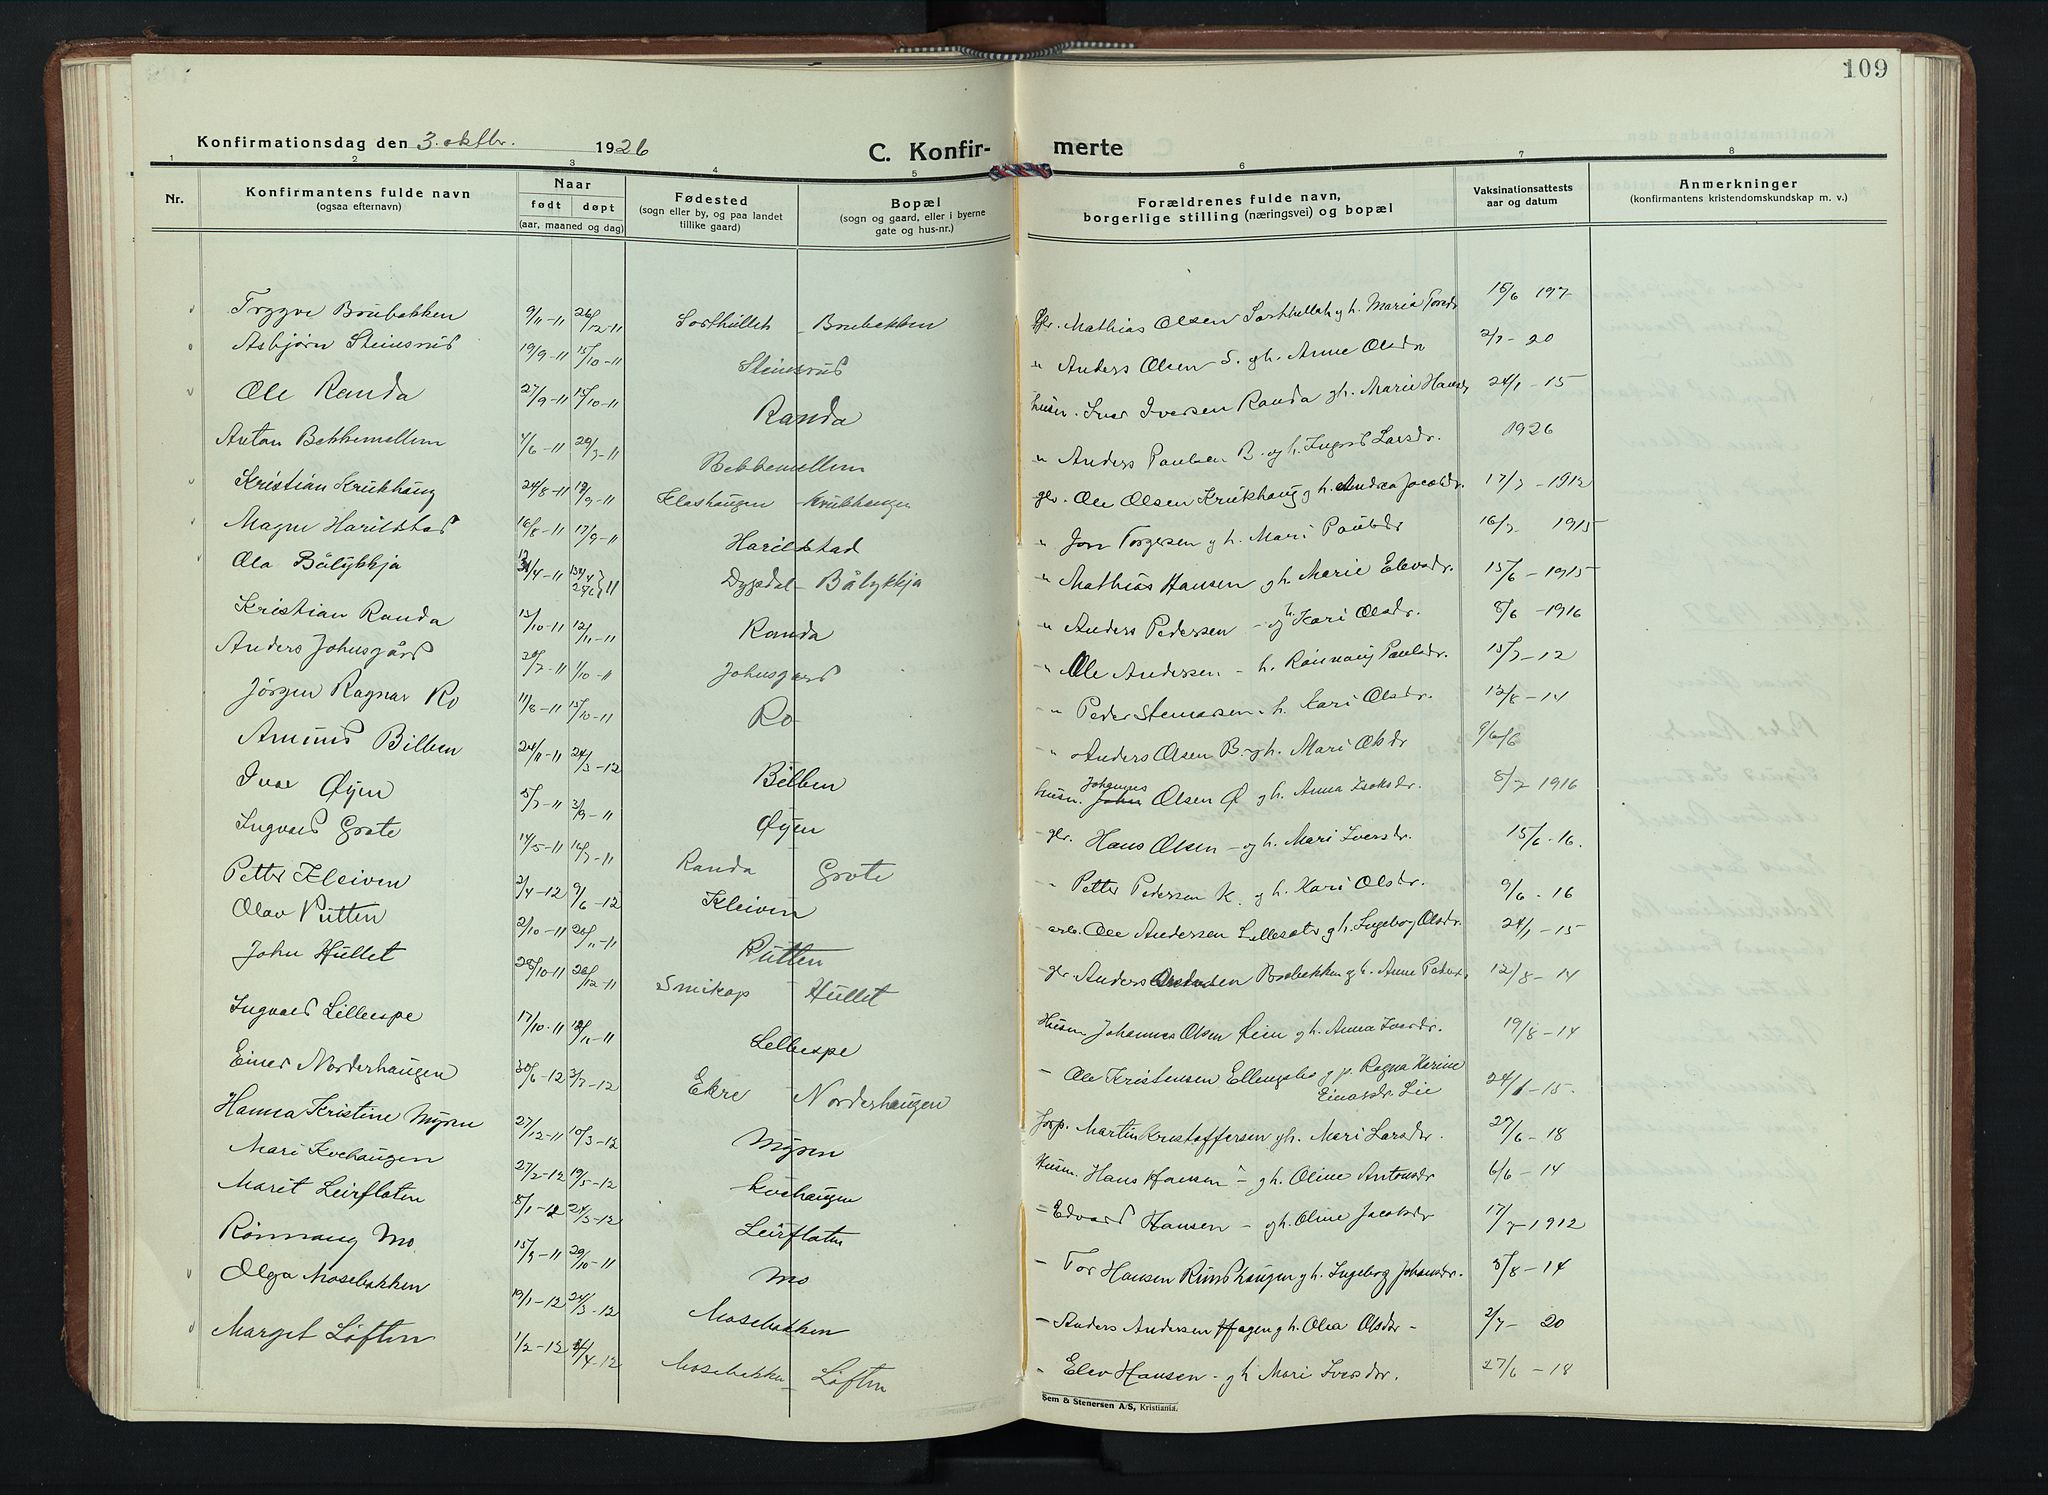 109
Konfirmationsdag den 3. oktbr. 1926
C. Konfir- merte
1 2 3 4 5 6 7 8
Nr.
Konfirmantens fulde navn
(ogsaa efternavn)
Naar
født døpt
(aar, maaned og dag)
Fødested
(sogn eller by, og paa landet
tillike gaard)
Bopæl
(sogn og gaard, eller i byerne
gate og hus-nr.)
Forældrenes fulde navn,
borgerlige stilling (næringsvei) og bopæl
Vaksinationsattests
aar og datum
Anmerkninger
(konfirmantens kristendomskundskap m. v.)
Trygve Brubakken 9/11-11 26/12-11 Brubakken Mathias Olsen gh. Maria
Asbjørn Steinsrud 19/9-11 15/10-11 Steinsrud " Anders Olsen S. gh. Anne Olsdr 2/7-20
Ole Randa 27/9-11 15/10-11 Randa husm. Ivar Iversen Randa gh. Marie 24/1-15
Anton Bekkemellem 4/6-11 Bekkemellem " Anders Paulsen B. og h. Larsdr. 1926
Kristian Krukhaug 24/8-11 Krukhaugen gbr. Ole Olsen Krukhaug gh. Andrea Jacobdr. 17/7-1912
Magne Harildstad 16/8-11 17/9-11 Harildstad " Jon Torgersen gh. Mari Paulsdr 16/7 1915
Ola Bålykkja Bålykkja " Mathias Hansen gh. Marie Elevsdr. 15/6-1915
Kristian Randa 15/10-11 12/11-11 Randa " Anders Pedersen - og h. Kari Olsdr. 8/6-1916
Anders Johnsgård 20/7-11 1/10-11 Johnsgard " Ole Andersen - h. Rønnaug Paulsdr. 15/7-12
Jørgen Ragnar Ro 11/8-11 15/10-11 Ro " Peder - h. Kari Olsdr. 12/8-14
Amund Bilben 24/11-11 24/3-12 Bilben " Anders Olsen B. gh. Mari Olsdr
Ivar Øyen 5/7-11 3/9-11 Øyen husm. Johannes Olsen Ø gh. Anna Isaksdr. 8/7 1916
Ingvald Grote 14/5-11 16/7-11 Randa Grote gbr. Hans Olsen - og h. Mari Iversdr. 15/6-16.
Petter Kleiven 2/4-12 9/6-12 Kleiven " Petter Pedersen K. gh. Kari Olsdr. 9/6-16
Olav Rutten 2/10-11 26/11-11 Rutten - arb. Ole Andersen Lillesæter gh. Ingeborg Olsdr. 24/1-15
John Hullet 28/10-11 26/12-11 Smikop - Hullet - gbr Anders Brubakken gh. Anne 12/8-14
Ingvald Lilleespe 17/10-11 Lilleespe Husm Johannes Olsen gh. Anna Iversdr. 19/8-14
Einar Norderhaugen 30/6-12 3/7-12 Ekre - Norderhaugen - Ole Kristensen g. p. Ragna Karine
Einarsdr. Lie 24/1-15.
Hanna Kristine Myren 27/12-11 10/3-12 Myren Jorp. Martin Kristoffersen gh. Mari Larsdr. 27/6-18
Mari Kvehaugen 27/2-12 19/5-12 Kvehaugen Husm. Hans Hansen - gh. Oline Antonsdr 6/6-14
Marit Leirflaten 8/1-12 24/3-12 Leirflaten - Edvard Hansen - gh. Oline Jacobsdr 17/7-1912
Rønnaug Mo. 15/9-11 29/10-11 Mo - Tor Hansen gh. Ingeborg Johansdr. 5/8-14
Olga Mosebakken 19/1-12 24/3-12 Mosebakken - Anders Andersen Hagen gh. Olea Olsdr - 2/7-20
Marget Løften 1/2-12 Mosebakken - Løften - Elev Hansen - gh Mari Iversdr. 27/6-18
Sem & Stenersen A/S, Kristiania.